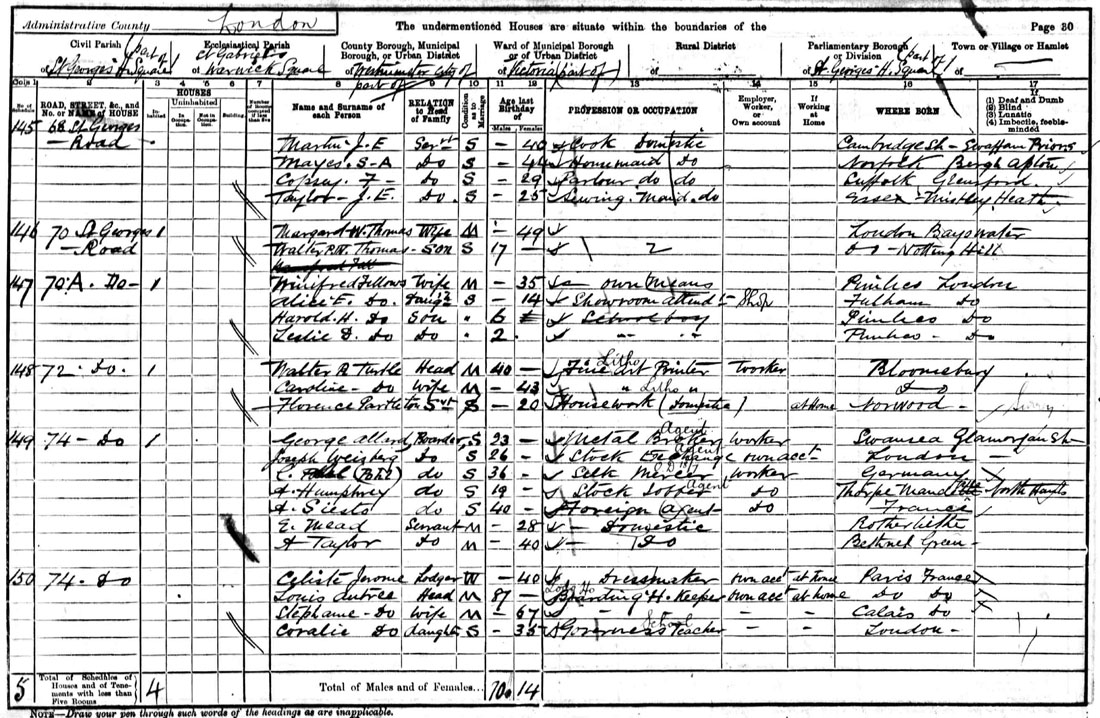 Administrative County London The undermentioned Houses are situate within the boundaries of the Page 30
Civil Parish (part of) Ecclesiastical Parish County Borough, Municipal Borough, or Urban District Ward of Municipal Borough or of Urban District Rural District Parliamentary Borough (part of) or Division Town or Village or Hamlet
of St Georges H. Square of St Gabriel Warwick Square of Westminster City of part of of Victoria (part of) of of St Georges H. Square of —
Cols 1 2 3 4 5 6 7 8 9 10 11 12 13 14 15 16 17
No. of Schedule ROAD, STREET, &c., and No. or NAME of HOUSE HOUSES Inhabited Uninhabited In Occupation Not in Occupation Building Number of Rooms if less than five Name and Surname of each Person RELATION to Head of Family Condition as to Marriage Age last Birthday of Males Females PROFESSION OR OCCUPATION Employer, Worker, or Own account If Working at Home WHERE BORN If (1) Deaf and Dumb (2) Blind (3) Lunatic (4) Imbecile, feeble-minded
145 68 St Georges Road
Martin J. E Servt S — 40 Cook Domestic Cambridgesh — Swaffham Priors
Mayes. S-A Do S — Housemaid Do Norfolk Bergh Apton
Copsey. F — do S — 29 Parlour do do Suffolk Glemsford
Taylor — J. E. Do. S — 25 Sewing. Maid. do Essex — Mistley Heath
146 70 St Georges Road 1 Margaret W. Thomas Wife M — 49 London Bayswater
Walter P.W. Thomas — Son S 17 — Do — Notting Hill
147 70.A. Do — 1 Winifred Fellows Wife M — 35 — own means Pimlico London
Alice E. Do. Daugr S — 14 Showroom attendt — Shop Fulham Do
Harold. H. Do Son " 6 Schoolboy Pimlico Do
Leslie D. Do Do " 2. " " Pimlico — Do
148 72 . Do. 1 Walter R Turtle Head M 40 — Fine Art Litho Printer Worker Bloomsbury
Caroline — Do Wife M — 43 " Litho " Do
Florence Partleton Svt S — 20 Housework (Domestic) at Home Norwood — Surrey
149 74 — Do 1 George Allard Boarder S 23 — Metal Broker Agent worker Swansea Glamorgan Sh
Joseph Weisberg Do S 26 — Stock Exchange Agent own acct London —
do S 36 — Silk Mercer worker Germany
A. Humphrey do S 19 — Stock Jobber Agent Do Thorpe Mandeville North Hants
A. Siesto do S 40 — Foreign Agent Do France
E. Mead Servant M — 28 — Domestic Rotherhithe
A Taylor Do M — 40 — Do Bethnal Green
150 74 . Do Celiste Jerome Lodger W — 40 Dressmaker own acct at home Paris France
Louis Autree Head M 87 — Boarding H. Keeper own acct at home Do Do
Stephanie — Do Wife M — 67 — Calais Do
Coralie Do daughtr S — 35 Governess School Teacher — — London —
5 Total of Schedules of Houses and of Tenements with less than Five Rooms 4 Total of Males and of Females... 10 14
NOTE—Draw your pen through such words of the headings as are inapplicable.